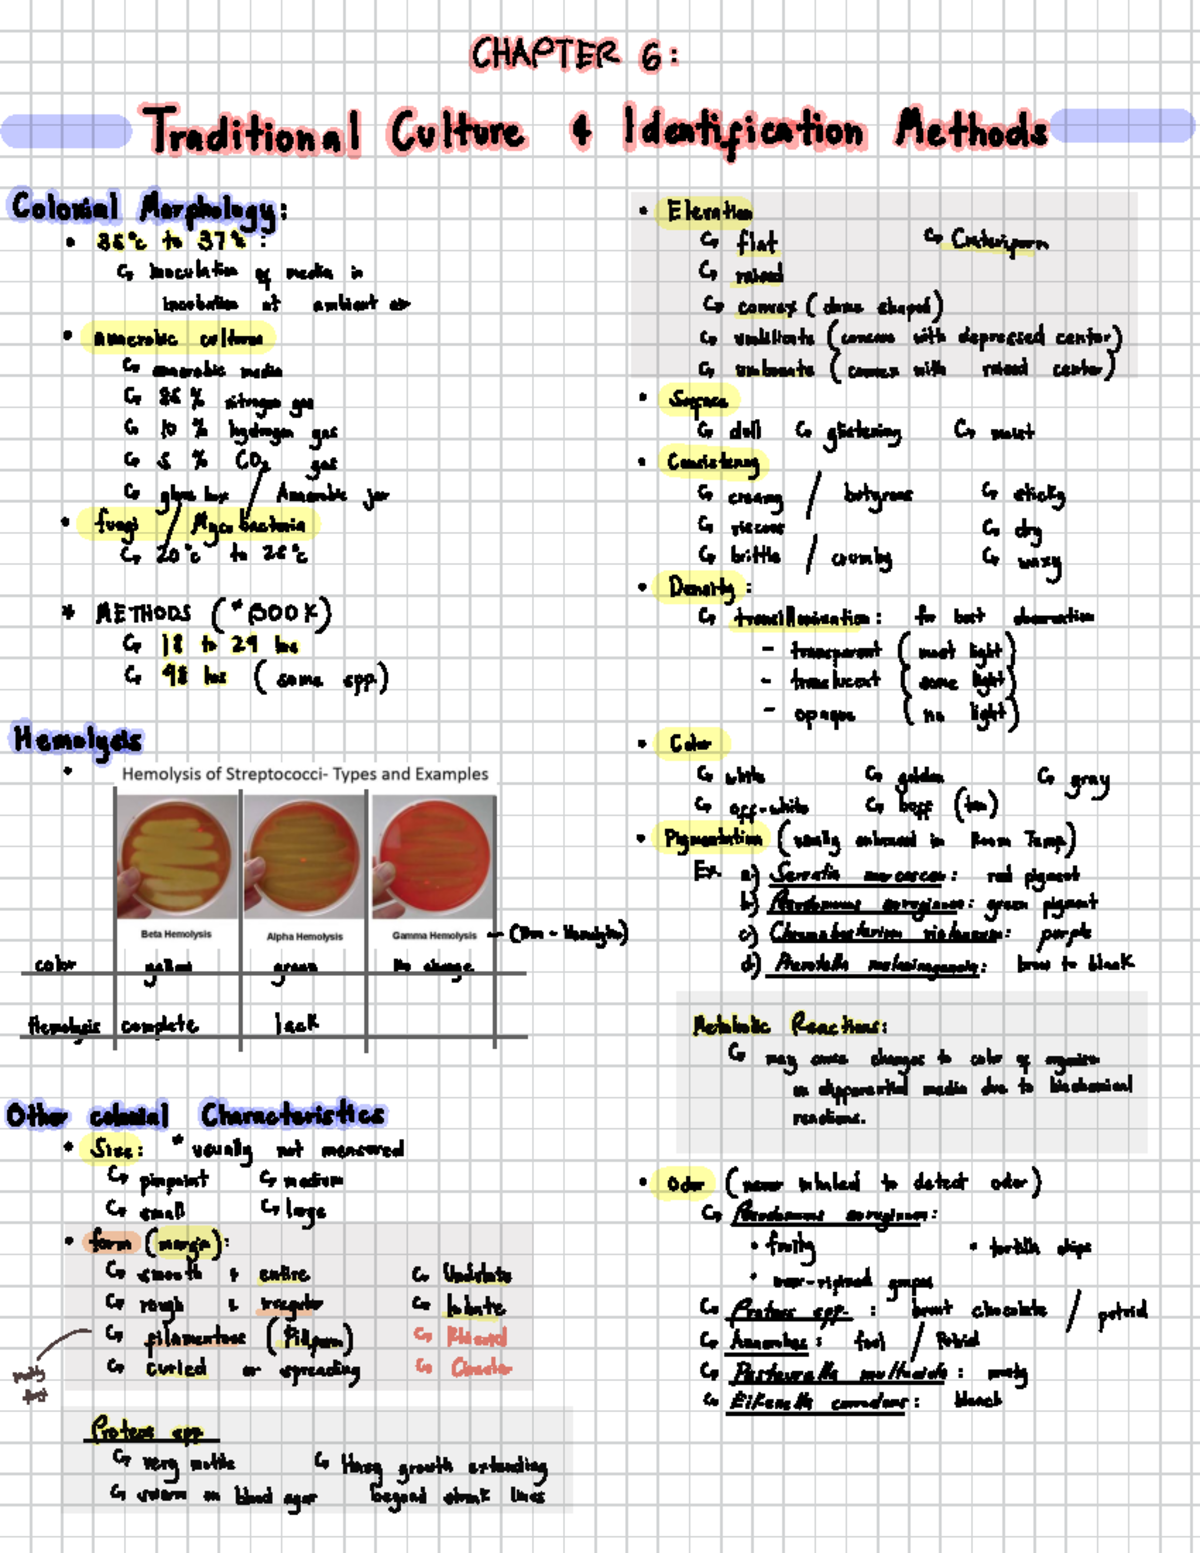 CHAPTER 6:
Traditional Culture & Identification Methods
Colonial Morphology:
• 35°C to 37°C :
↳ inoculation of media in
incubation at ambient air
• anaerobic culture
↳ anaerobic media
↳ 85 % nitrogen gas
↳ 10 % hydrogen gas
↳ 5 % CO₂ gas
↳ glove box / Anaerobic jar
• fungi / Mycobacteria
↳ 20°C to 28°C
* METHODS (*BOOK)
↳ 18 to 24 hrs
↳ 48 hrs (some spp.)
Hemolysis
• Hemolysis of Streptococci- Types and Examples
Beta Hemolysis Alpha Hemolysis Gamma Hemolysis → (Non - Hemolytic)
color yellow green No change
Hemolysis complete lack
Other colonial Characteristics
• Size: * usually not measured
↳ pinpoint ↳ medium
↳ small ↳ large
• form (margin):
↳ smooth & entire ↳ Undulate
↳ rough & irregular ↳ lobate
↳ filamentous (Filiform) ↳ Rhizoid
↳ curled or spreading ↳ Circular
Proteus spp
↳ very motile ↳ Hazy growth extending
↳ swarm on blood agar beyond streak lines
• Elevation
↳ flat ↳ Crateriform
↳ raised
↳ convex (dome shaped)
↳ umbilicate (concave with depressed center)
↳ umbonate (convex with raised center)
• Surface
↳ dull ↳ glistening ↳ moist
• Consistency
↳ creamy / butyrous ↳ sticky
↳ viscous ↳ dry
↳ brittle / crumbly ↳ waxy
• Density :
↳ transillumination : for best observation
- transparent (most light)
- translucent (some light)
- opaque (no light)
• Color
↳ white ↳ golden ↳ gray
↳ off-white ↳ buff (tan)
• Pigmentation (usually enhanced in Room Temp)
Ex. a) Serratia marcescens : red pigment
b) Pseudomonas aeruginosa : green pigment
c) Chromobacterium violaceum : purple
d) Prevotella melaninogenica : brown to black
Metabolic Reactions:
↳ may cause changes to color of organism
on differential media due to biochemical
reactions.
• Odor (never inhaled to detect odor)
↳ Pseudomonas aeruginosa :
• fruity • tortilla chips
• over-ripened grapes
↳ Proteus spp. : burnt chocolate / putrid
↳ Anaerobes : foul / Putrid
↳ Pasteurella multocida : musty
↳ Eikenella corrodens : bleach